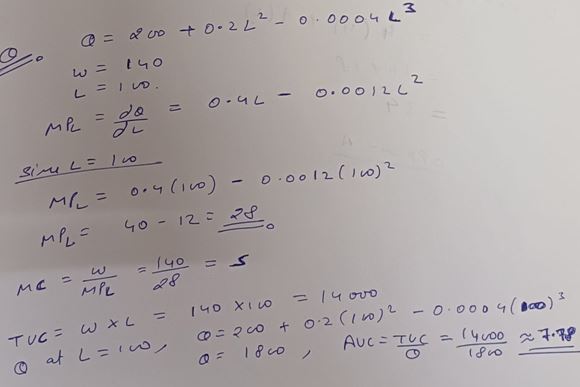 Q. Q = 200 + 0.2L² - 0.0004L³
w = 140
L = 100.
MPL = dQ/dL = 0.4L - 0.0012L²
Since L = 100
MPL = 0.4(100) - 0.0012(100)²
MPL = 40 - 12 = 28.
MC = w/MPL = 140/28 = 5
TVC = w × L = 140 × 100 = 14000
Q at L = 100, Q = 200 + 0.2(100)² - 0.0004(100)³
Q = 1800, AVC = TVC/Q = 14000/1800 ≈ 7.78